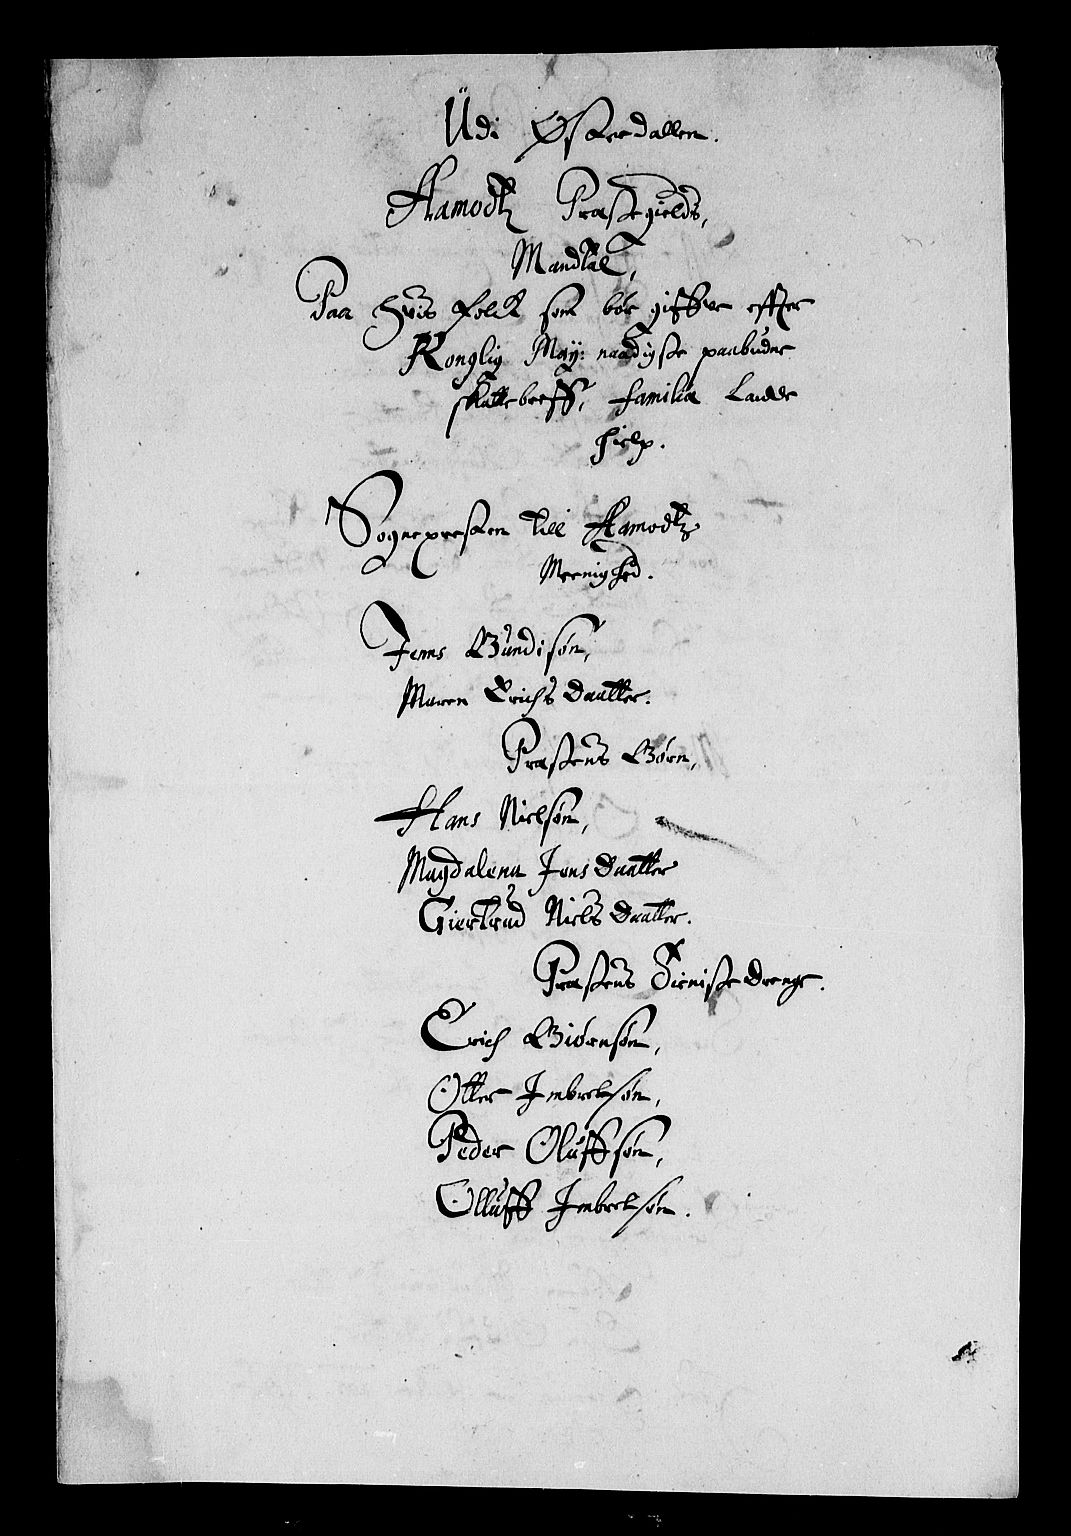 Udi Østerdallen.
Aamodtz Præstegields,
Mandtal,
Paa huis folck som bør giffue effter
Konglig May: naadigste paabudne
skattebreff, familiæ Landde
hielp.
Sognepresten till Aamodtz
Meenighed.
Jenns Gundisøn,
Maren Erichs Daatter.
Præstens Børn,
Hans Nielsøn,
Magdalena Jens Daatter
Giertrud Niels Daatter.
Præstens Tieniste drenge.
Erich Biørnsøn,
Otter Imbrelsøn,
Peder Oluffsøn,
Olluff Imbrelsøn.